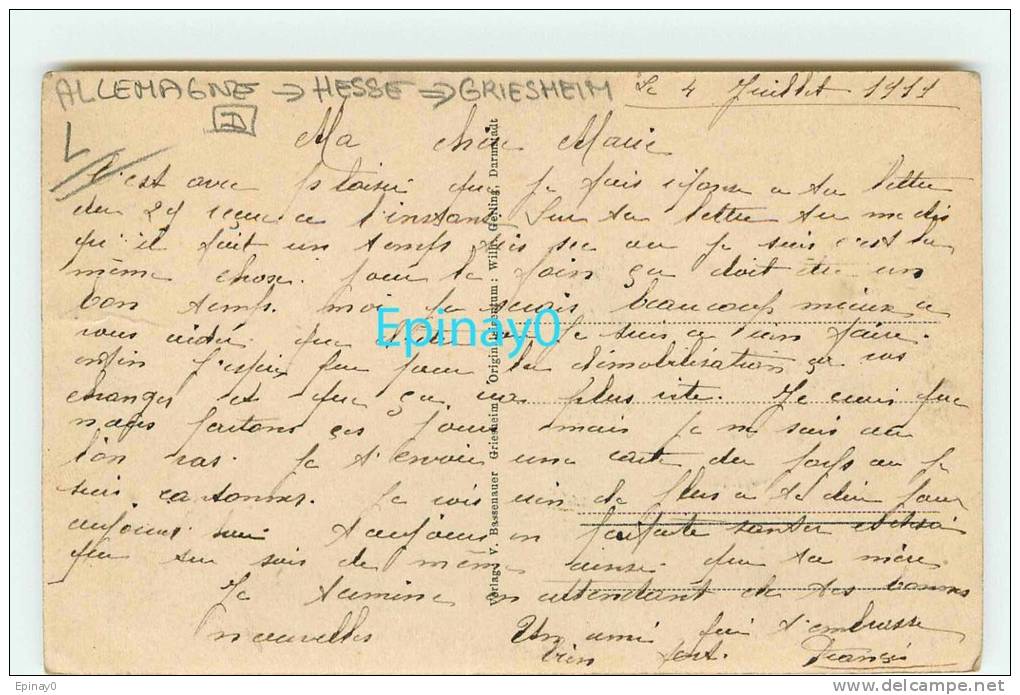 ALLEMAGNE → HESSE → GRIESHEIM
D
Le 4 Juillet 1919
Ma chère Marie
C'est avec plaisir que je fais réponse a ta lettre
du 29 reçue a l'instant. Sur ta lettre tu me dis
qu'il fait un temps très sec ou je suis c'est la
même chose. pour le foin ça doit être un
bon temps. moi je serais beaucoup mieux a
vous aidé que je suis a rien faire.
enfin j'espère que pour la démobilisation ça vas
changer et que ça vas plus vite. Je crois que
nous partons ces jours mais je ne sais ou
l'on vas. Je t'envoie une carte du pays ou je
suis cantonner. Je vois rien de plus a te dire pour
aujourd'hui toujours en parfaite santer et désir
que tu sois de même ainsi que ta mère
Je termine en attendant de tes bonnes
nouvelles Un ami qui t'embrasse
bien fort. Francis
Verlag: V. Bassenauer Griesheim. Original Eigentum: Wilh. Gerling, Darmstadt
Epinay0
Epinay0
www.delcampe.net